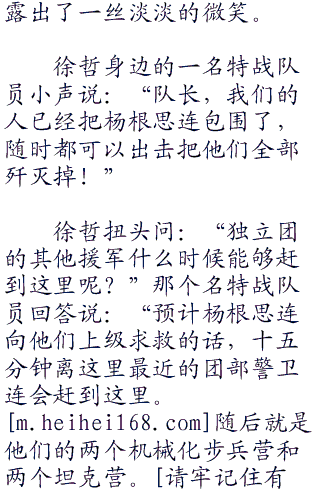 露出了一丝淡淡的微笑。
徐哲身边的一名特战队
员小声说：“队长，我们的
人已经把杨根思连包围了，
随时都可以出击把他们全部
歼灭掉！”
徐哲扭头问：“独立团
的其他援军什么时候能够赶
到这里呢？”那个名特战队
员回答说：“预计杨根思连
向他们上级求救的话，十五
分钟离这里最近的团部警卫
连会赶到这里。
[m.heihei168.com]随后就是
他们的两个机械化步兵营和
两个坦克营。[请牢记住有